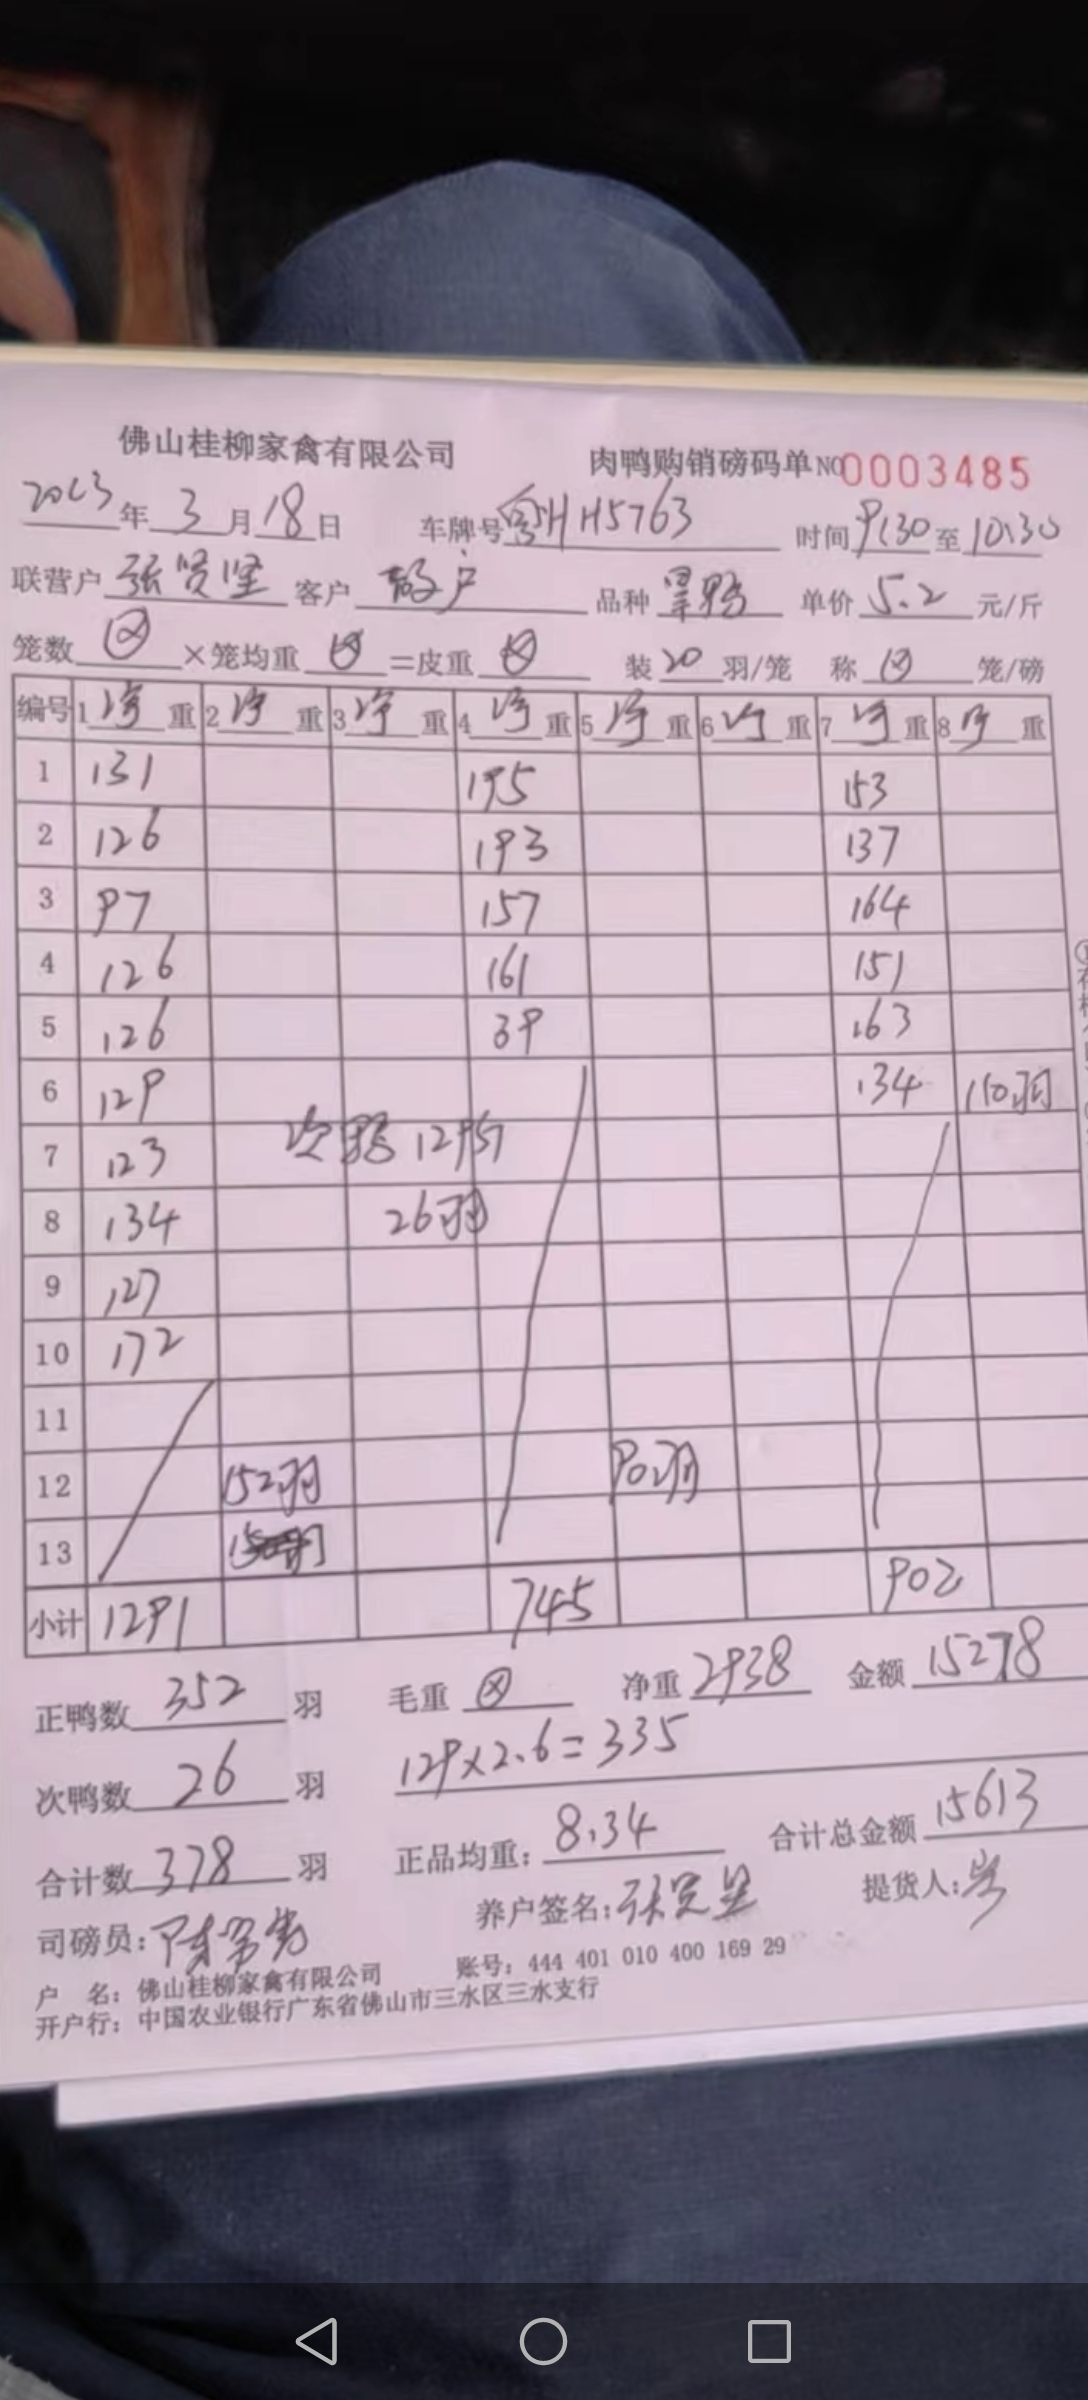 佛山桂柳家禽有限公司 肉鸭购销磅码单NO0003485
2023年3月18日 车牌号粤HH5763 时间9:30至10:30
联营户张贤坚 客户 散户 品种 单价5.2元/斤
笼数⊗×笼均重⊗=皮重⊗ 装20羽/笼 称⊗笼/磅
编号 1净重 2净重 3净重 4净重 5净重 6净重 7净重 8净重
1 131 195 153
2 126 193 137
3 97 157 164
4 126 161 151
5 126 39 163
6 129 134 110羽
7 123 次鸭129斤
8 134 26羽
9 127
10 172
11
12 152羽 90羽
13
小计 1291 745 902
正鸭数352羽 毛重⊗ 净重2938 金额15278
次鸭数26羽 129×2.6=335
合计数378羽 正品均重:8.34 合计总金额15613
司磅员: 养户签名:张贤坚 提货人:
户 名:佛山桂柳家禽有限公司 账号:444 401 010 400 169 29
开户行:中国农业银行广东省佛山市三水区三水支行